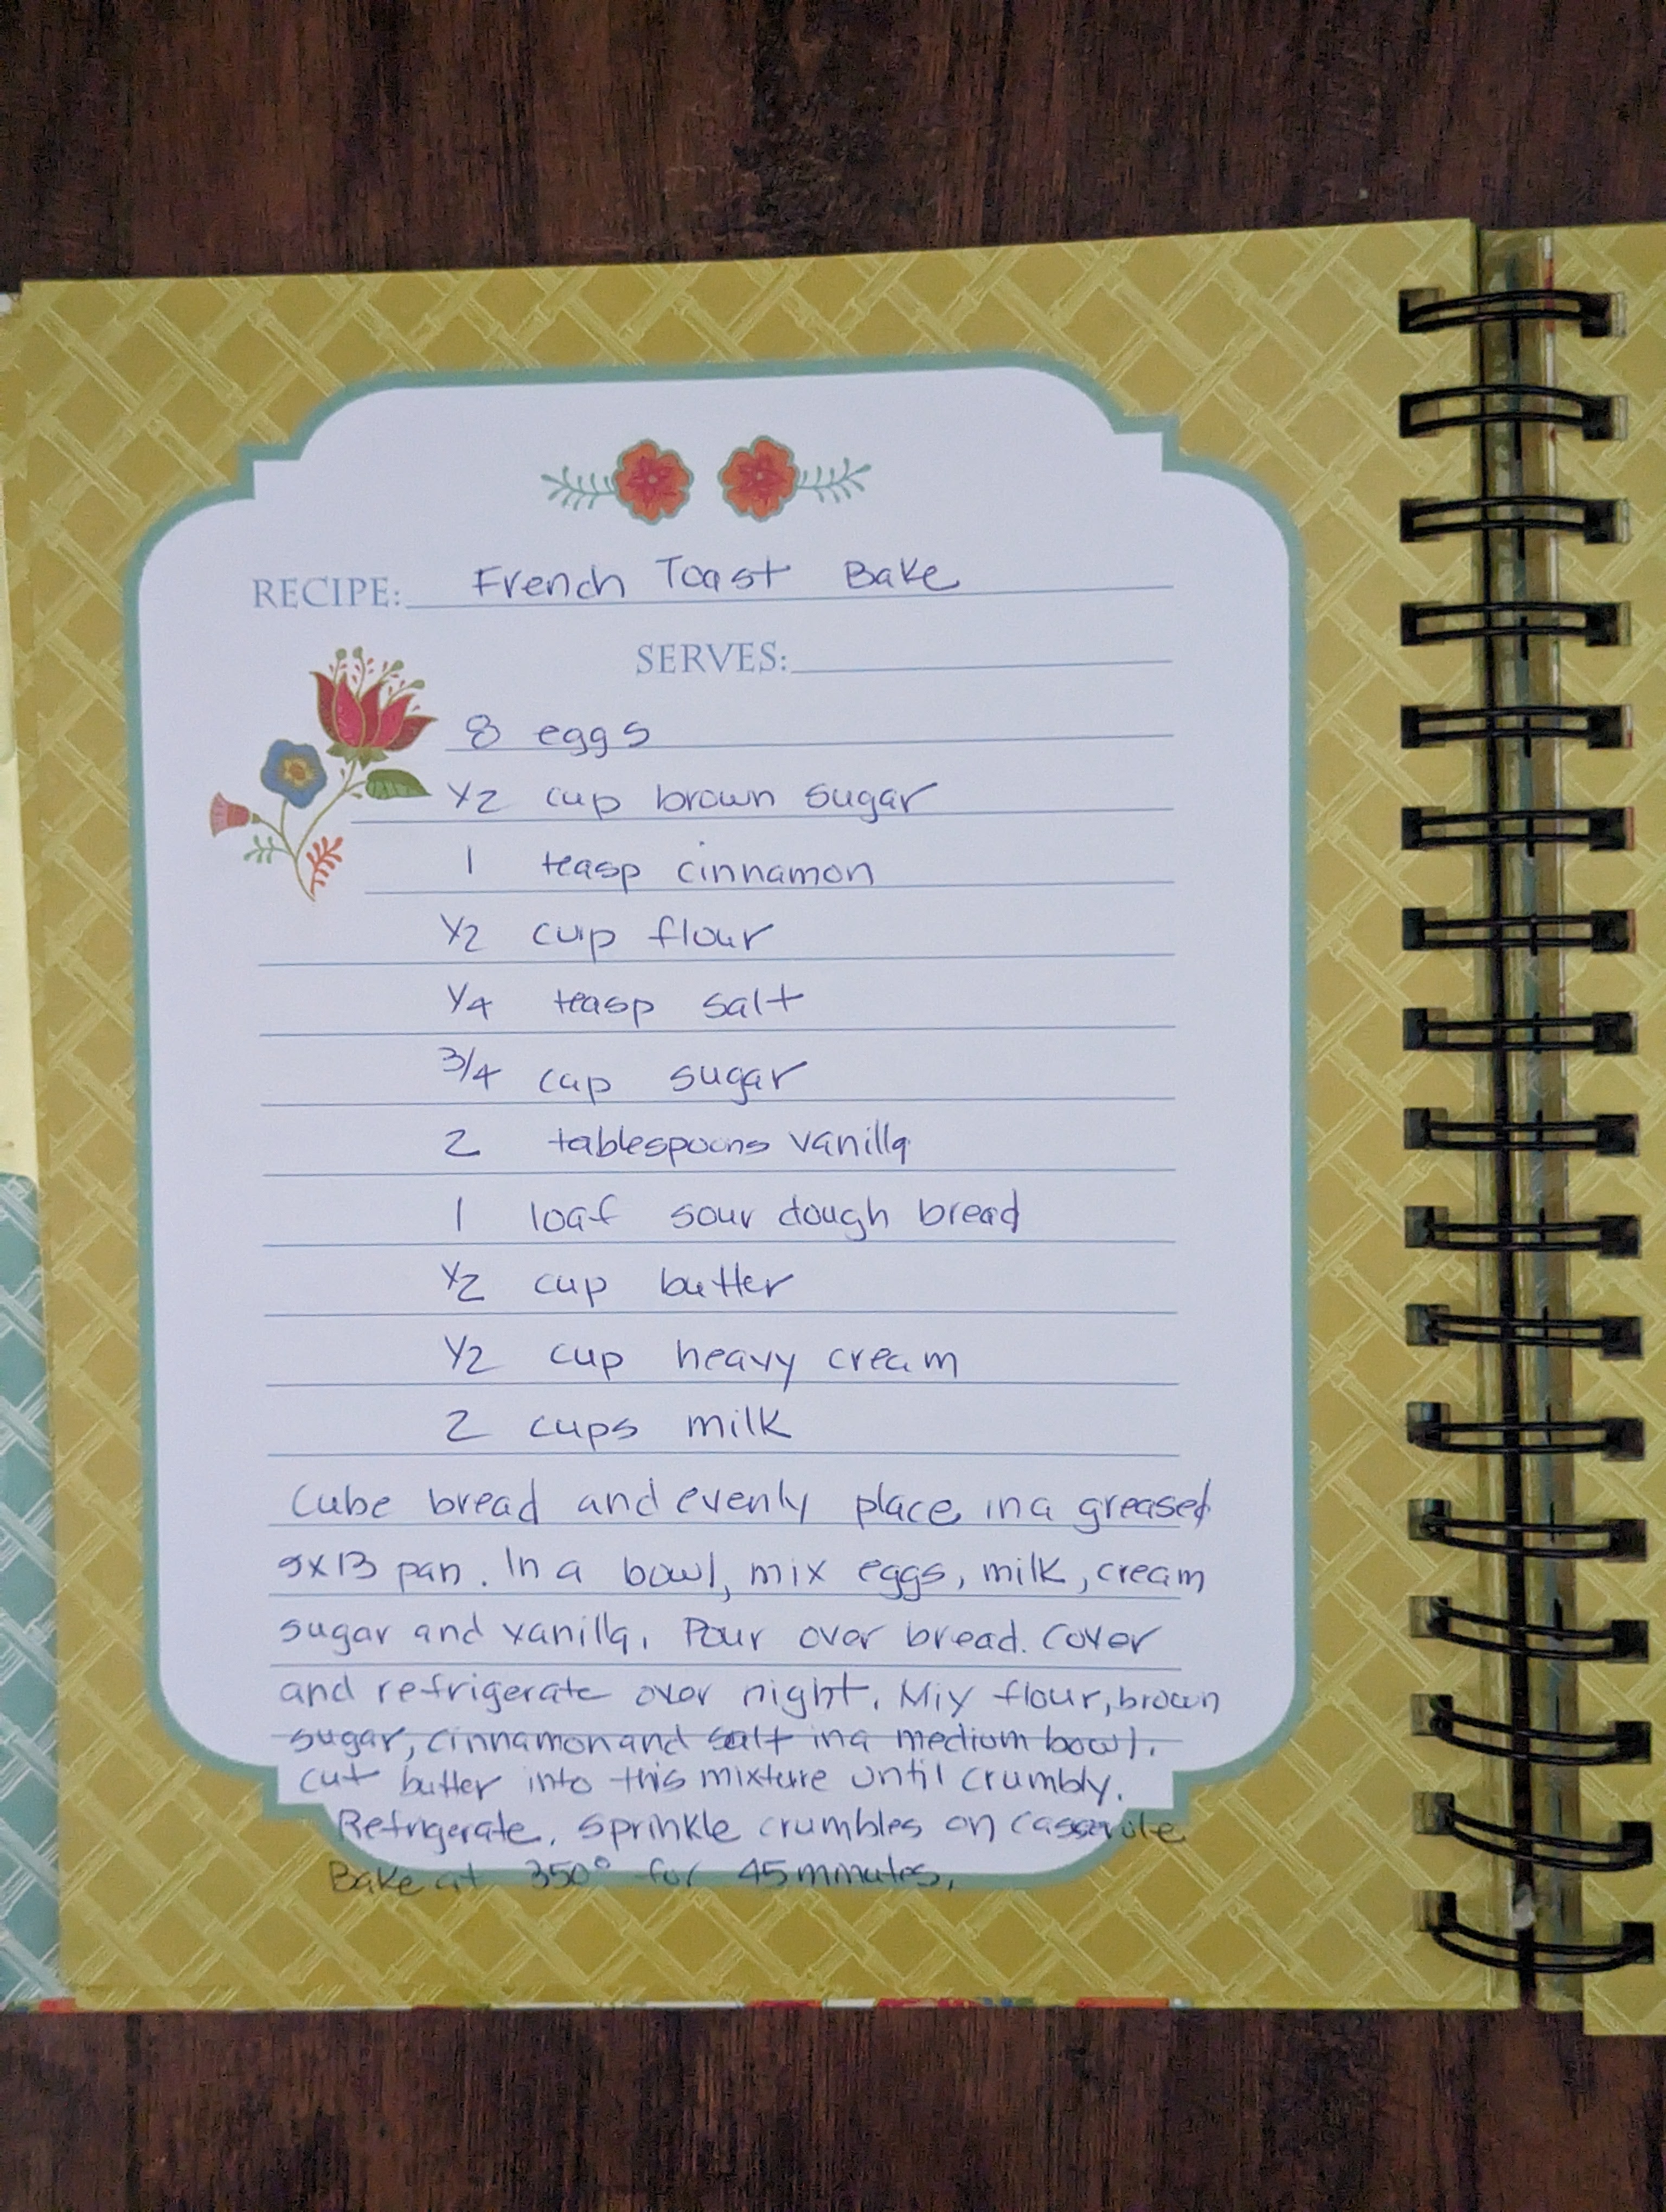 RECIPE: French Toast Bake
SERVES:
8 eggs
1/2 cup brown sugar
1 teasp cinnamon
1/2 cup flour
1/4 teasp salt
3/4 cup sugar
2 tablespoons vanilla
1 loaf sour dough bread
1/2 cup butter
1/2 cup heavy cream
2 cups milk
Cube bread and evenly place in a greased
9x13 pan. In a bowl, mix eggs, milk, cream
sugar and vanilla. Pour over bread. Cover
and refrigerate over night. Mix flour, brown
sugar, cinnamon and salt in a medium bowl.
cut butter into this mixture until crumbly.
Refrigerate. Sprinkle crumbles on casserole
Bake at 350° for 45 minutes.